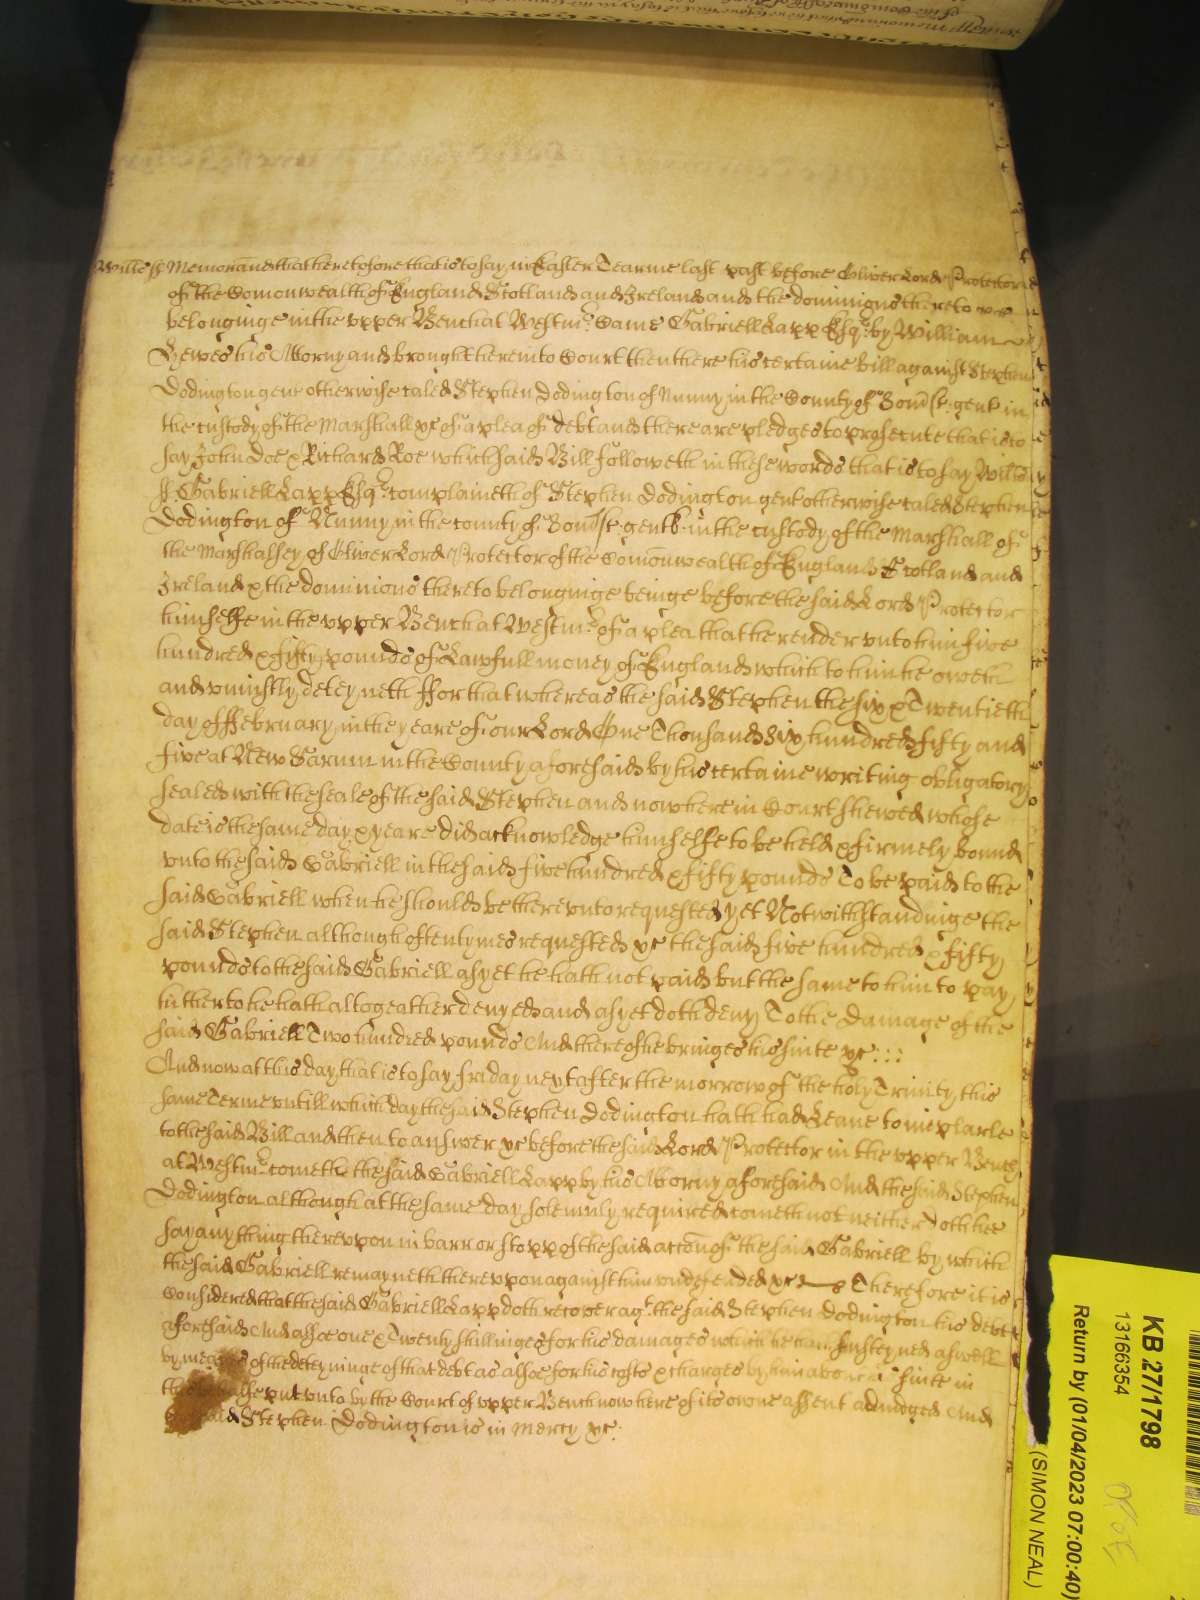 Wiltes ss Memorand that heretofore that is to say in Easter Tearme last past before Oliver Lord Protector
of the Comonwealth of England Scotland and Ireland and the dominions thereto
belonginge in the upper Bench at Westmr. Came Gabriell Lapp Esqr. by William
Hewes his Attorny and brought here into Court then there his certaine bill against Stephen
Dodington gent otherwise caled Stephen Dodington of Nunny in the County of Somsr. gent in
the custody of the Marshall &c of a plea of debt and there are pledges to prosecute that is to
say John Doe & Richard Roe which said Bill followeth in these words that is to say Wiltes
ss. Gabriell Lapp Esqr. complaineth of Stephen Dodington gent otherwise caled Stephen
Dodington of Nunny in the county of Somsr. gent in the custody of the Marshall of
the Marshalsey of Oliver Lord Protector of the Comonwealth of England Scotland and
Ireland & the dominions thereto belonginge beinge before the said Lord Protector
himselfe in the upper Bench at Westmr. of a plea that he render unto him five
hundred & fifty pounds of Lawfull money of England which to him he oweth
and uniustly deteyneth ffor that whereas the said Stephen the six & Twentieth
day of ffebruary in the yeare of our Lord One Thousand Six hundred fifty and
five at New Sarum in the County aforesaid by his certaine writing obligatory
sealed with the seale of the said Stephen and now here in Court shewed whose
date is the same day & yeare did acknowledge himselfe to be held & firmely bound
unto the said Gabriell in the said five hundred & fifty pounds To be paid to the
said Gabriell when he should be thereunto requested yet Notwithstandinge the
said Stephen although often tymes requested &c the said five hundred & fifty
pounds to the said Gabriell as yet he hath not paid but the same to him to pay
hitherto he hath altogeather denyed and as yet doth deny To the Damage of the
said Gabriell Two hundred pounds And thereof he bringes his suite &c :::
And now at this day that is to say friday next after the morrow of the holy Trinity this
same Terme untill which day the said Stephen Dodington hath had Leave to imparle
to the said Bill and then to answer &c before the said Lord Protector in the upper Bench
at Westmr. cometh the said Gabriell Lapp by his Attorny aforesaid And the said Stephen
Dodington although at the same day solemnly required cometh not neither doth hee
say any thing thereupon in barr or stopp of the said accon of the said Gabriell by which
the said Gabriell remayneth thereupon against him undefended &c Therefore it is
Considered that the said Gabriell Lapp doth recover agt. the said Stephen Dodington his debt
aforesaid And alsoe one & Twenty shillinges for his damages which he hath susteyned aswell
by meanes of the deteyninge of that debt as alsoe for his costs & charges by him about his suite in
put unto by the Court of upper Bench now here of its owne assent adiudged And
said Stephen Dodington is in Mercy &c.
KB 27/1798
13166354
Return by (01/04/2023 07:00:40)
(SIMON NEAL)